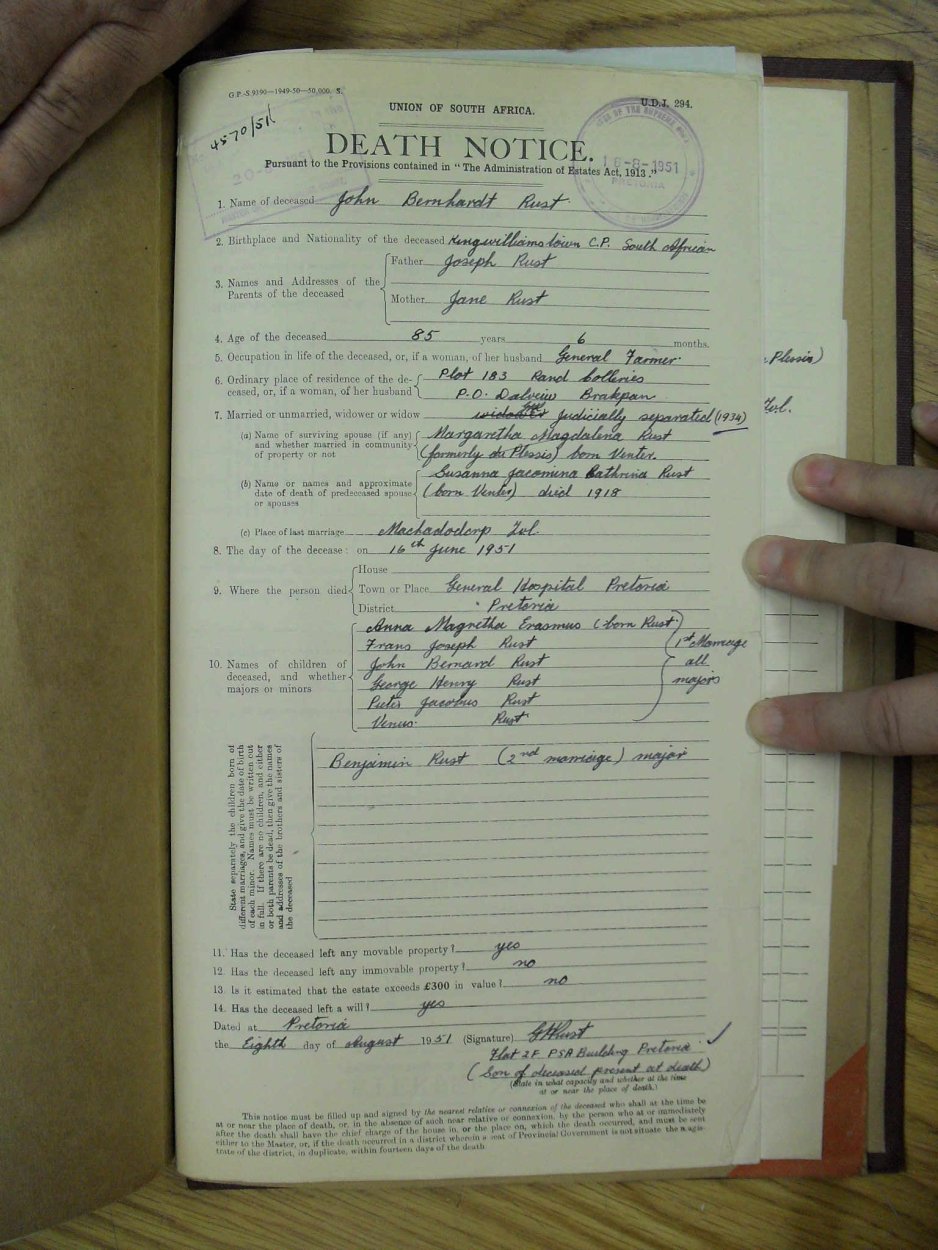 G.P.-S.9390—1949-50—50,000. S.
UNION OF SOUTH AFRICA.
U.D.J. 294.
4570/51
DEATH NOTICE.
Pursuant to the Provisions contained in "The Administration of Estates Act, 1913."
16-8-1951
PRETORIA
1. Name of deceased John Bernhardt Rust
2. Birthplace and Nationality of the deceased Kingwilliamstown C.P. South African
3. Names and Addresses of the Parents of the deceased
Father Joseph Rust
Mother Jane Rust
4. Age of the deceased 85 years 6 months.
5. Occupation in life of the deceased, or, if a woman, of her husband General Farmer
6. Ordinary place of residence of the deceased, or, if a woman, of her husband
Plot 183 Rand Colleries
P.O. Dalview Brakpan
7. Married or unmarried, widower or widow Judicially separated (1934)
(a) Name of surviving spouse (if any) and whether married in community of property or not
Margaretha Magdalena Rust
(formerly du Plessis) born Venter.
(b) Name or names and approximate date of death of predeceased spouse or spouses
Susanna Jacomina Cathrina Rust
(born Venter) died 1918
(c) Place of last marriage Machadodorp Tvl.
8. The day of the decease: on 16th June 1951
9. Where the person died
House
Town or Place General Hospital Pretoria
District Pretoria
10. Names of children of deceased, and whether majors or minors
Anna Magretha Erasmus (born Rust)
Frans Joseph Rust
John Bernard Rust
George Henry Rust
Pieter Jacobus Rust
Venus Rust
1st Marriage
all
majors
State separately the children born of
different marriages, and give the date of birth
of each minor. Names must be written out
in full. If there are no children, and either
or both parents be dead, then give the names
and addresses of the brothers and sisters of
the deceased
Benjamin Rust (2nd marriage) major
11. Has the deceased left any movable property? yes
12. Has the deceased left any immovable property? no
13. Is it estimated that the estate exceeds £300 in value? no
14. Has the deceased left a will? yes
Dated at Pretoria
the Eighth day of August 1951 (Signature) GHRust
Flat 2F PSA Building Pretoria
(Son of deceased present at death)
(State in what capacity and whether at the time
at or near the place of death.)
This notice must be filled up and signed by the nearest relative or connexion of the deceased who shall at the time be
at or near the place of death, or, in the absence of such near relative or connexion, by the person who at or immediately
after the death shall have the chief charge of the house in, or the place on, which the death occurred, and must be sent
either to the Master, or, if the death occurred in a district wherein a seat of Provincial Government is not situate the magis-
trate of the district, in duplicate, within fourteen days of the death
Plessis)
Tvl.